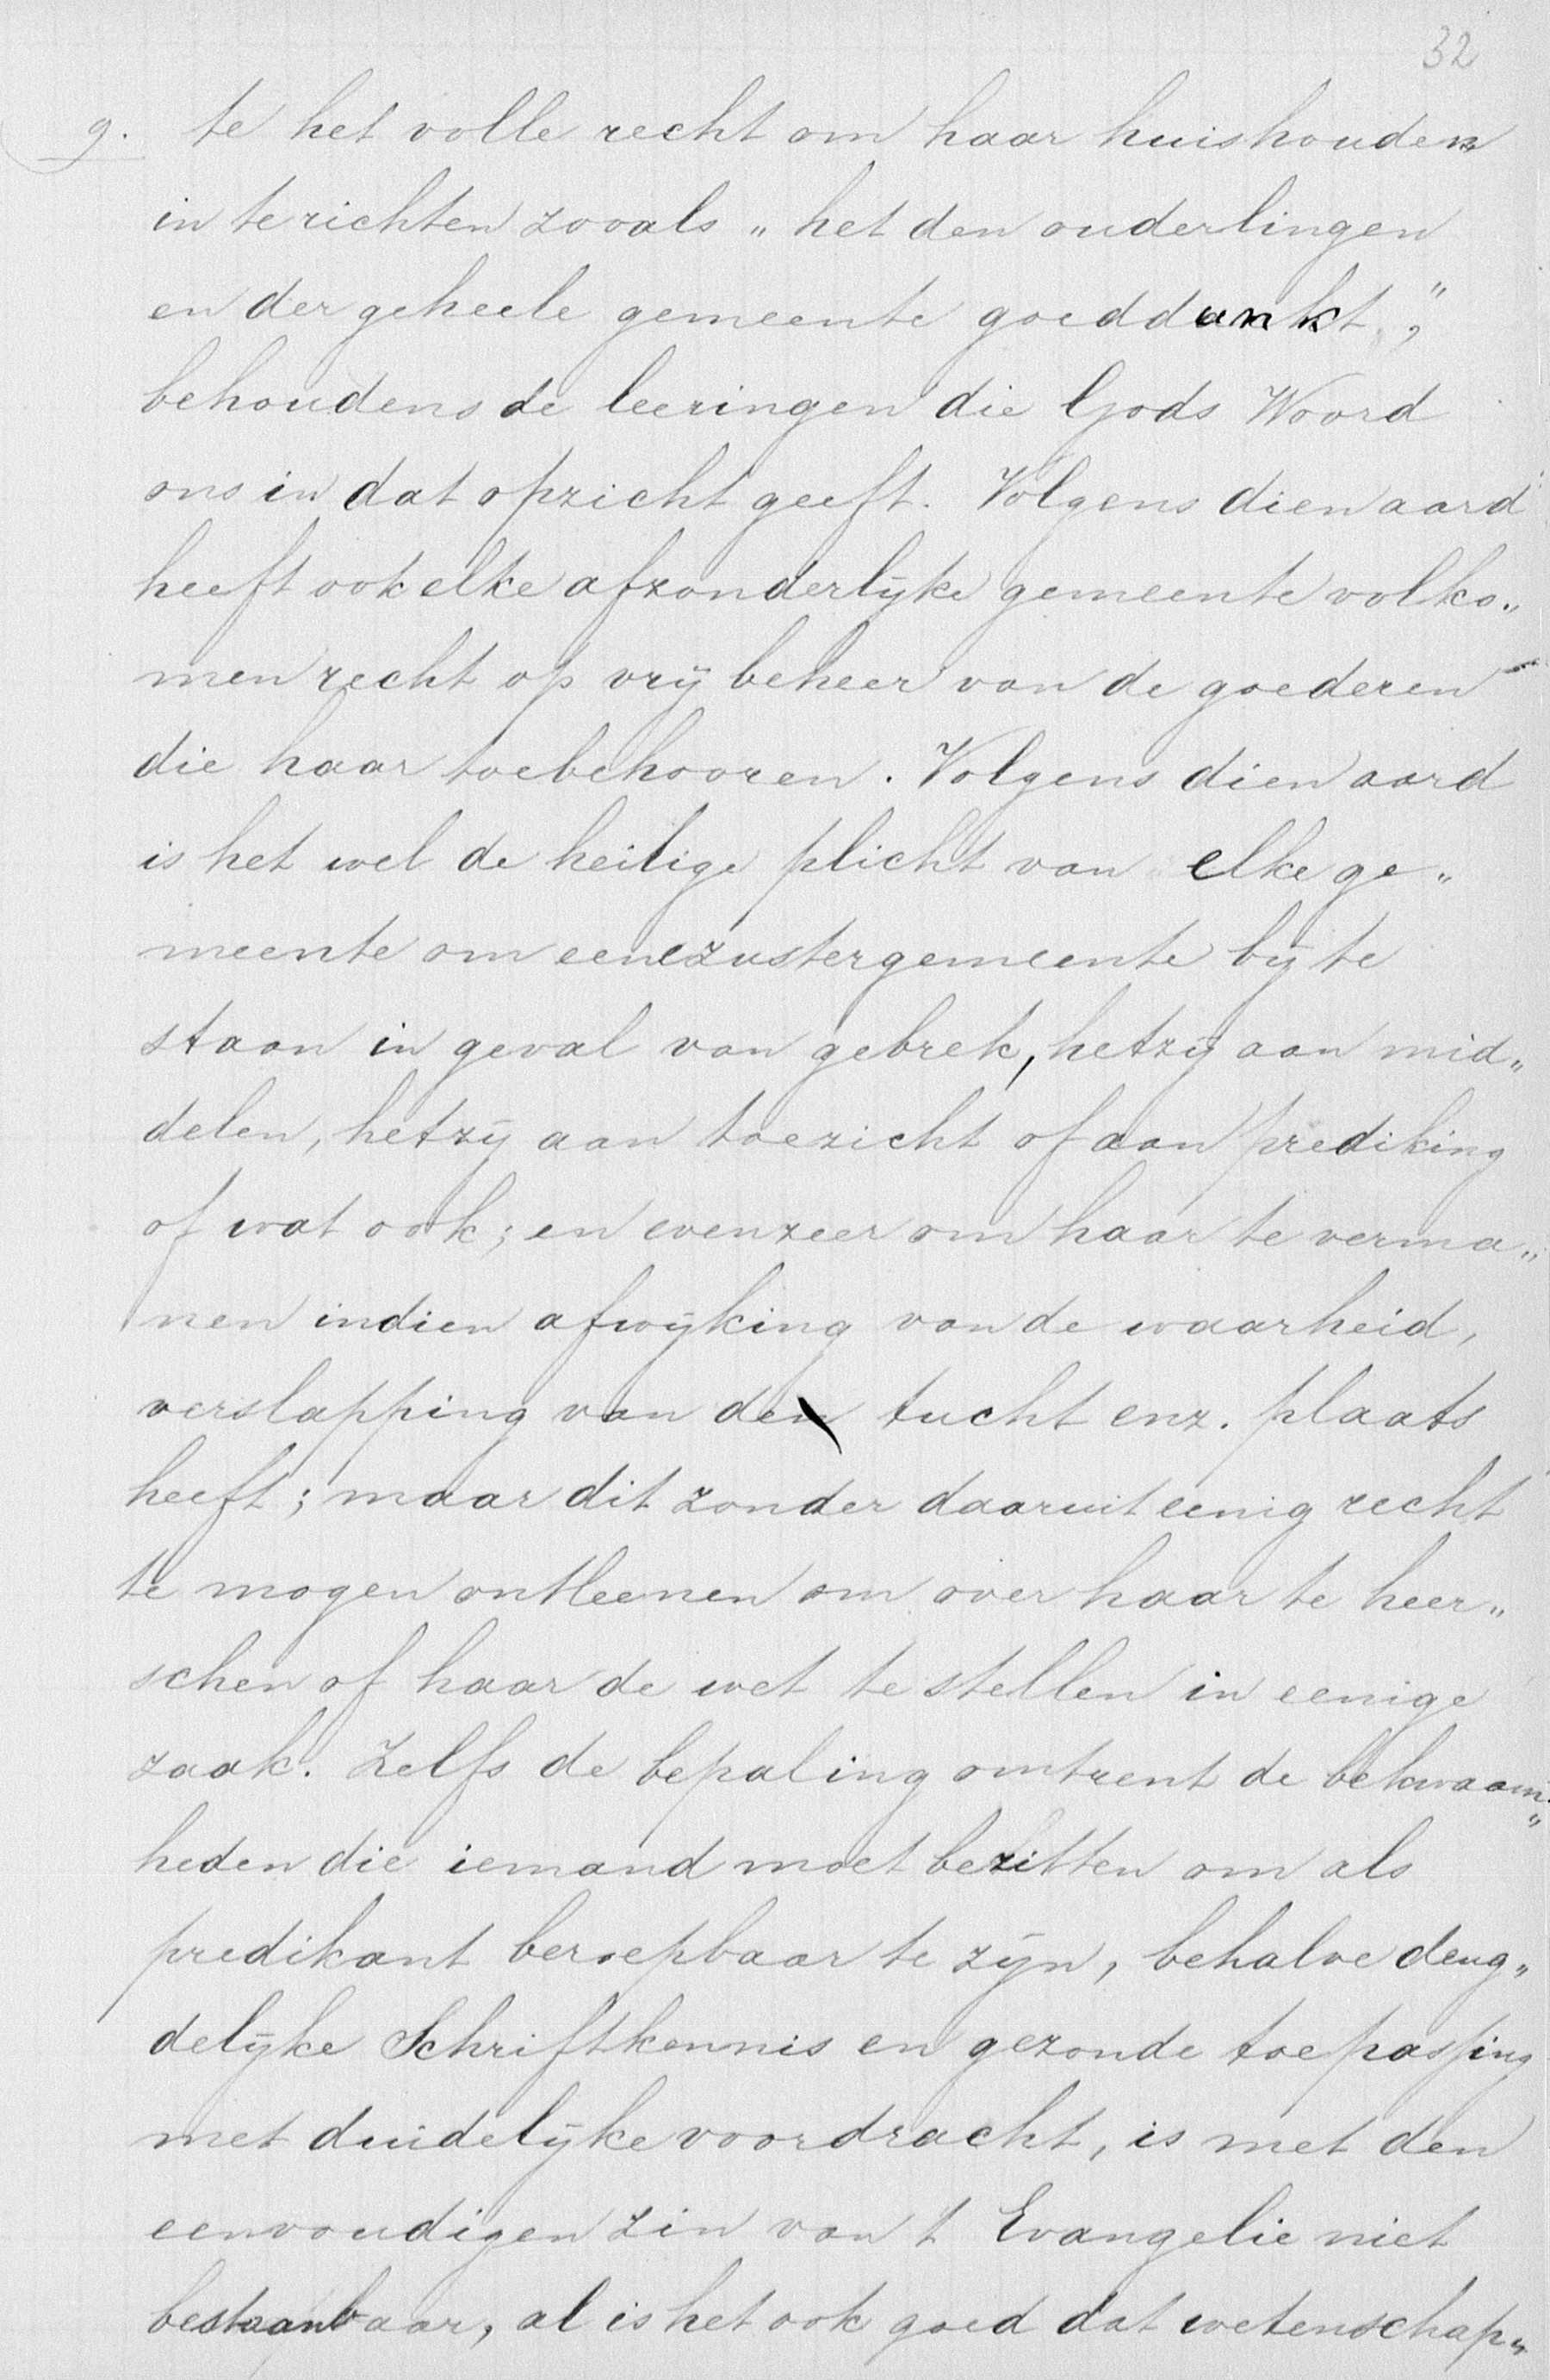 32
g. te het volle recht om haar huishouden
in te richten zooals „het den ouderlingen
en der geheele gemeente goeddunkt",
behoudens de leeringen die Gods Woord
ons in dat opzicht geeft. Volgens dien aard
heeft ook elke afzonderlyke gemeente volko„
men recht op vrij beheer van de goederen
die haar toebehooren. Volgens dien aard
is het wel de heilige plicht van elke ge„
meente om eene zustergemeente bij te
staan in geval van gebrek, hetzij aan mid„
delen, hetzij aan toezicht of aan prediking
of wat ook; en evenzeer om haar te verma„
nen indien afwijking van de waarheid,
verslapping van de tucht enz. plaats
heeft; maar dit zonder daaruit eenig recht
te mogen ontleenen om over haar te heer„
schen of haar de wet te stellen in eenige
zaak. Zelfs de bepaling omtrent de bekwaam„
heden die iemand moet bezitten om als
predikant beroepbaar te zijn, behalve deug„
delijke Schriftkennis en gezonde toepassing
met duidelijke voordracht, is met den
eenvoudigen zin van t Evangelie niet
bestaanbaar, al is het ook goed dat wetenschap„